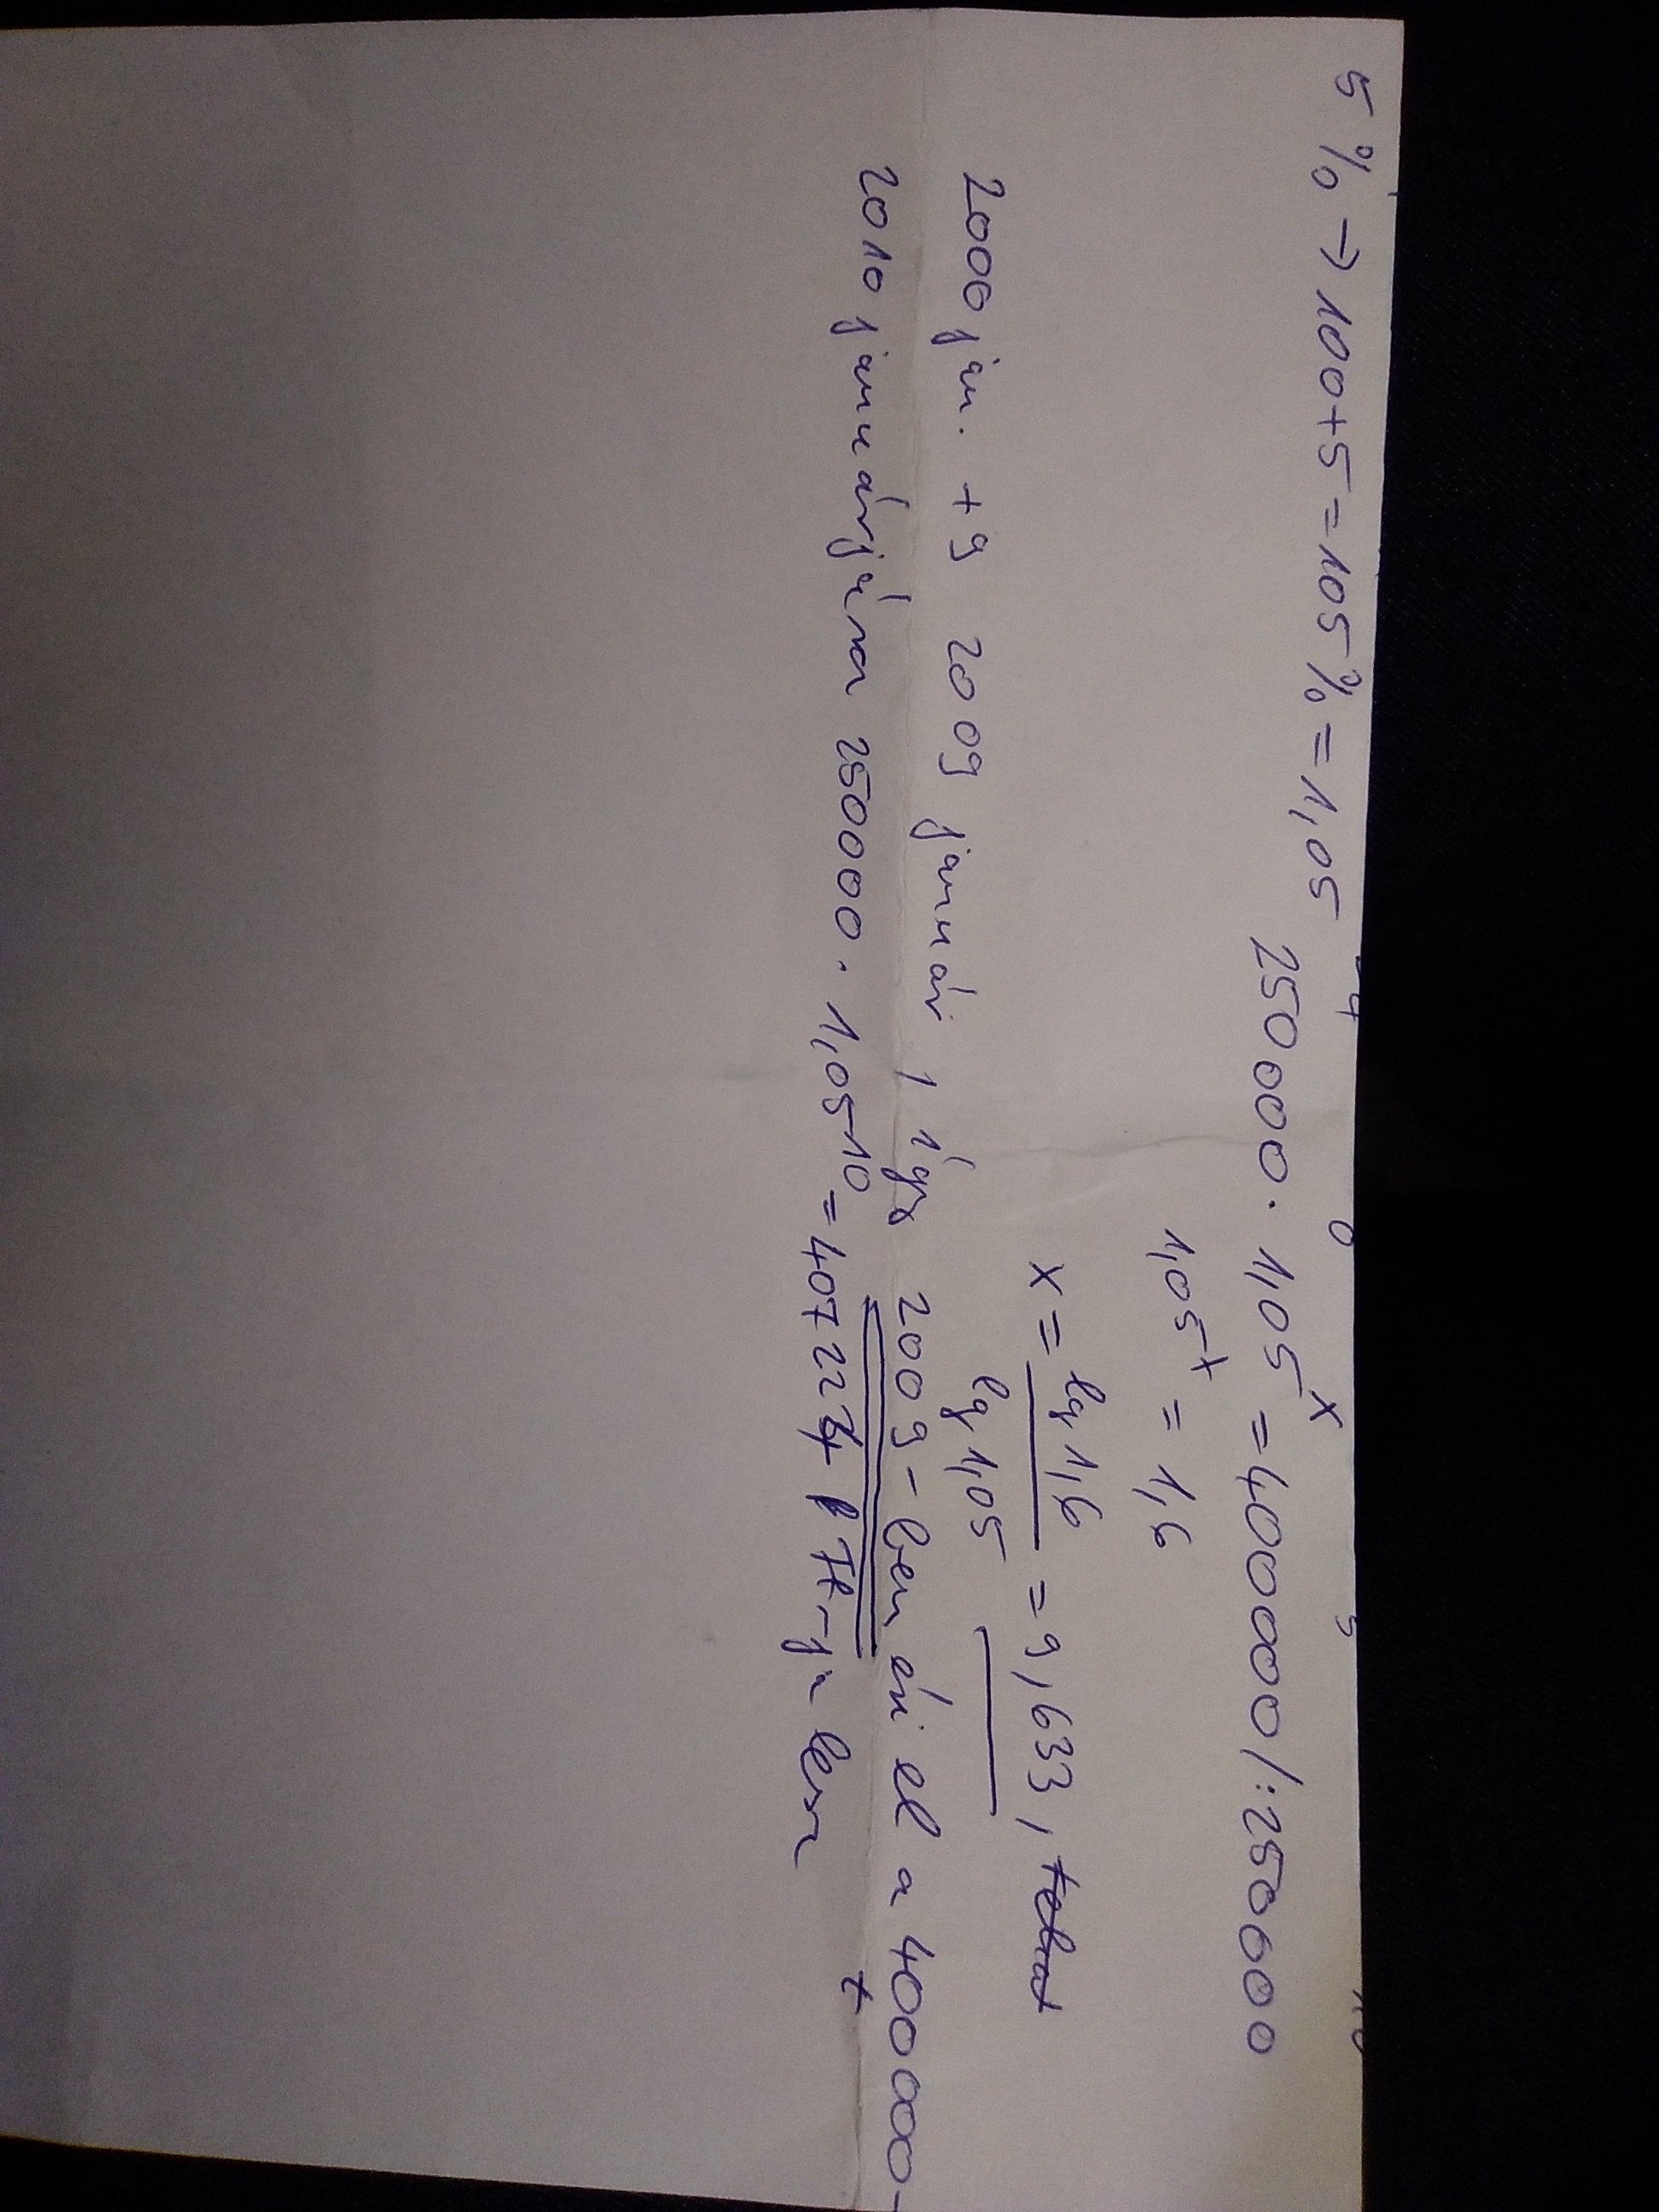 5% → 100+5=105%=1,05
250000 · 1,05^x = 400000 /:250000
1,05^x = 1,6
x = lg 1,6 / lg 1,05 = 9,633,
2000 jan. +9 2009 január, így 2009-ben éri el a 400000-t
2010 januárjára 250000 · 1,05^10 = 407224 Ft-ja lesz